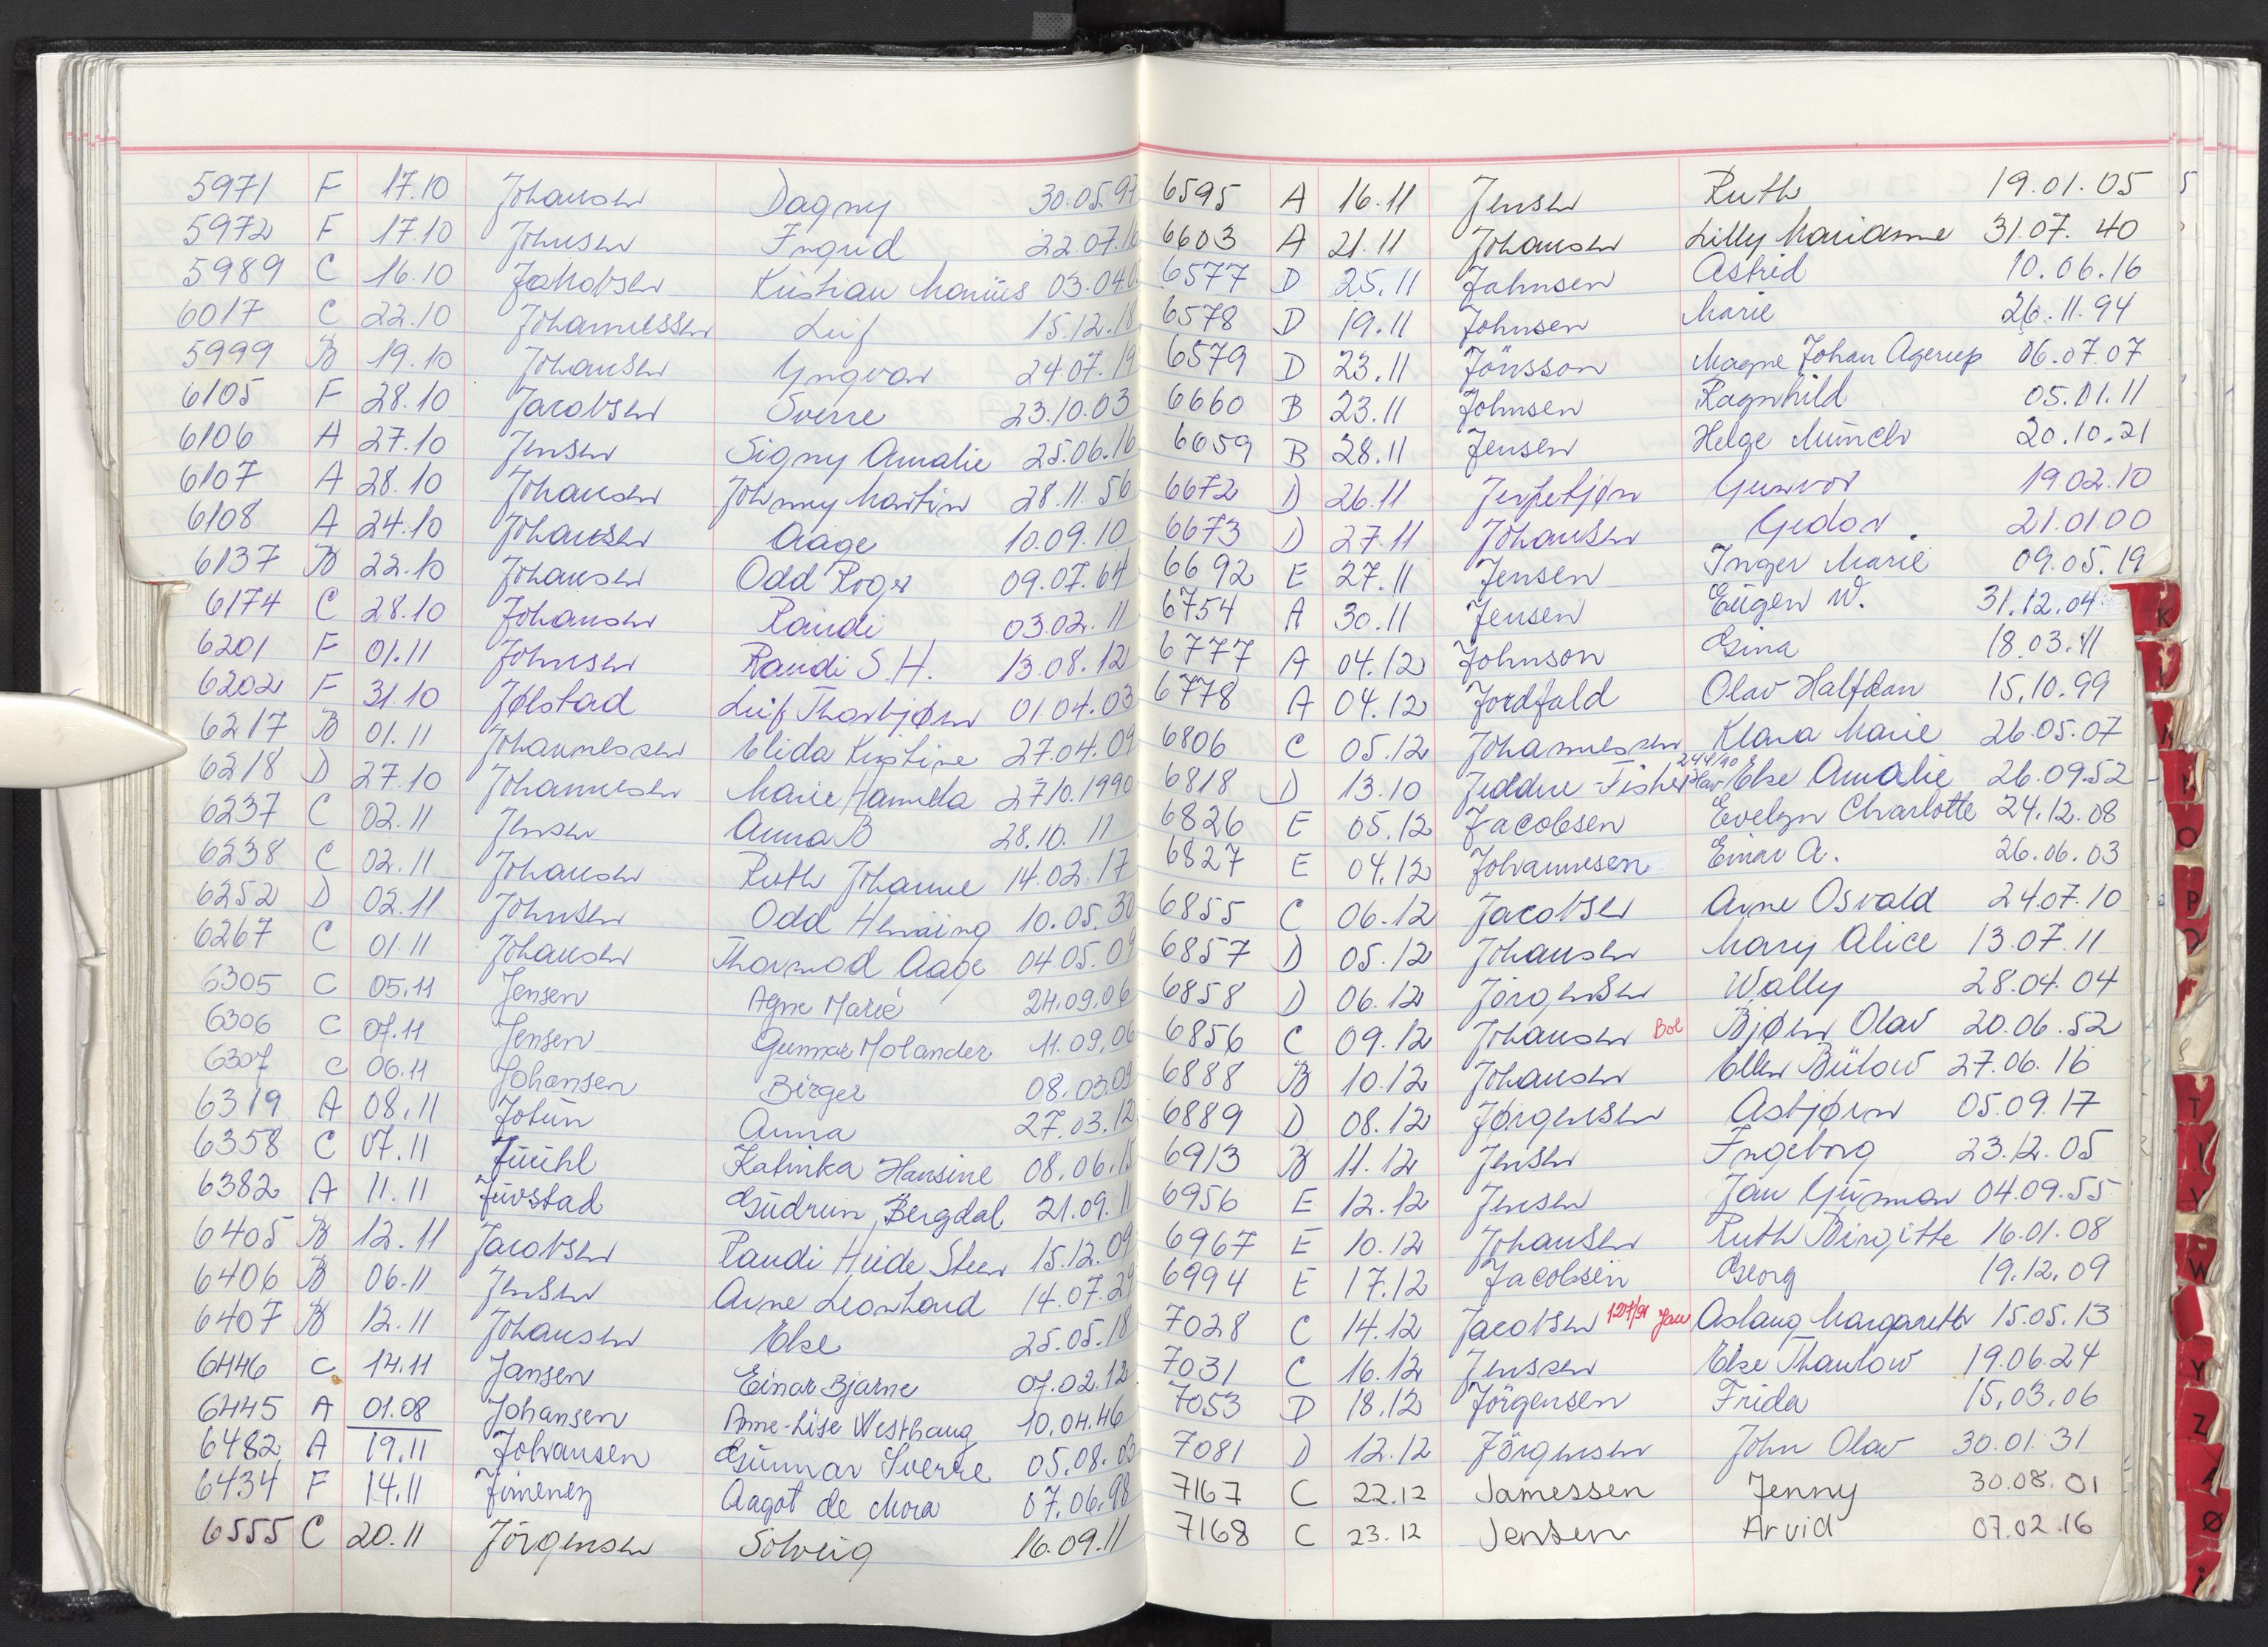 5971 F 17.10 Johansen Dagny 30.05.97
5972 F 17.10 Johnsen Ingrid 22.07.16
5989 C 16.10 Jakobsen Kristian Marius 03.04.0
6017 C 22.10 Johannessen Leif 15.12.18
5999 B 19.10 Johansen Yngvar 24.07.19
6105 F 28.10 Jacobsen Sverre 23.10.03
6106 A 27.10 Jensen Signy Amalie 25.06.16
6107 A 28.10 Johansen Johnny Martin 28.11.56
6108 A 24.10 Johansen Aage 10.09.10
6137 B 22.10 Johansen Odd Roger 09.07.64
6174 C 28.10 Johansen Randi 03.02.11
6201 F 01.11 Johnsen Randi S.H. 13.08.12
6202 F 31.10 Jølstad Leif Thorbjørn 01.04.03
6217 B 01.11 Johannessen Elida Kristine 27.04.09
6218 D 27.10 Johannesen Marie Hameda 27.10.1990
6237 C 02.11 Jensen Anna B 28.10.11
6238 C 02.11 Johansen Ruth Johanne 14.02.17
6252 D 02.11 Johnsen Odd Henning 10.05.30
6267 C 01.11 Johansen Thormod Aage 04.05.09
6305 C 05.11 Jensen Agne Marie 24.09.06
6306 C 07.11 Jensen Gunnar Molander 11.09.06
6307 C 06.11 Johansen Birger 08.03.09
6319 A 08.11 Jotun Anna 27.03.12
6358 C 07.11 Juuhl Katinka Hansine 08.06.15
6382 A 11.11 Juvstad Gudrun Bergdal 21.09.11
6405 B 12.11 Jacobsen Randi Heide Steen 15.12.09
6406 B 06.11 Jensen Arne Leonhard 14.07.29
6407 B 12.11 Johansen Else 25.05.18
6446 C 14.11 Jansen Einar Bjarne 07.02.12
6445 A 01.08 Johansen Anne-Lise Westhaug 10.04.46
6482 A 19.11 Johansen Gunnar Sverre 05.08.03
6434 F 14.11 Jimenez Aagot de Mora 07.06.98
6555 C 20.11 Jörgensen Solveig 16.09.11
6595 A 16.11 Jensen Ruth 19.01.05
6603 A 21.11 Johansen Lilly Marianne 31.07.40
6577 D 25.11 Jahnsen Astrid 10.06.16
6578 D 19.11 Johnsen Marie 26.11.94
6579 D 23.11 Jönsson Magne Johan Agerup 06.07.07
6660 B 23.11 Johnsen Ragnhild 05.01.11
6659 B 28.11 Jensen Helge Münch 20.10.21
6672 D 26.11 Gunvor 19.02.10
6673 D 27.11 Johansen Gedor 21.01.00
6692 E 27.11 Jensen Inger Marie 09.05.19
6754 A 30.11 Jensen Eugen W. 31.12.04
6777 A 04.12 Johnson Gina 18.03.11
6778 A 04.12 Jordfald Olav Halfdan 15.10.99
6806 C 05.12 Johannessen Klara Marie 26.05.07
6818 D 13.10 Jeddere-Fisher Else Amalie 26.09.52
6826 E 05.12 Jacobsen Evelyn Charlotte 24.12.08
6827 E 04.12 Johannesen Einar A. 26.06.03
6855 C 06.12 Jacobsen Arne Osvald 24.07.10
6857 D 05.12 Johansen Mary Alice 13.07.11
6858 D 06.12 Jörgensen Wally 28.04.04
6856 C 09.12 Johansen Bol Bjørn Olav 20.06.52
6888 B 10.12 Johansen Ellen Bülow 27.06.16
6889 D 08.12 Jørgensen Asbjørn 05.09.17
6913 B 11.12 Jensen Ingeborg 23.12.05
6956 E 12.12 Jensen Jan Gunnar 04.09.55
6967 E 10.12 Johansen Ruth Birgitte 16.01.08
6994 E 17.12 Jacobsen Georg 19.12.09
7028 C 14.12 Jacobsen 127/91 Jau Aslaug Margareth 15.05.13
7031 C 16.12 Jenssen Else Thaulow 19.06.24
7053 D 18.12 Jörgensen Frida 15.03.06
7081 D 12.12 Jörgensen John Olav 30.01.31
7167 C 22.12 Jamessen Jenny 30.08.01
7168 C 23.12 Jensen Arvid 07.02.16
K
L
N
O
P
T
V
W
Y
Z
Ø